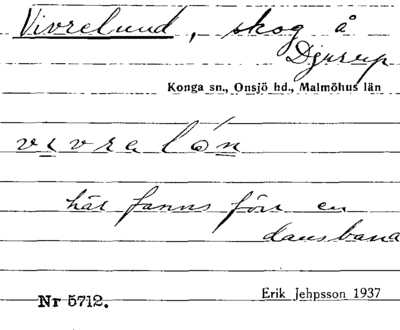 Vivrelund, skog å
Djurup
Konga sn., Onsjö hd., Malmöhus län
vivralón
här fanns förr en
dansbana
Nr 5712.
Erik Jehpsson 1937